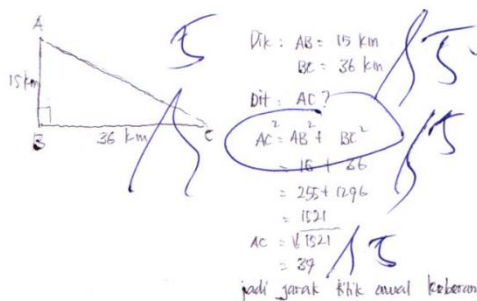 A
15 km
B
36 km
C
5
Dik : AB = 15 km
BC = 36 km
Dit : AC ?
AC² = AB² + BC²
= 15 + 36
= 255 + 1296
= 1521
AC = √1521
= 39
15
jadi jarak titik awal